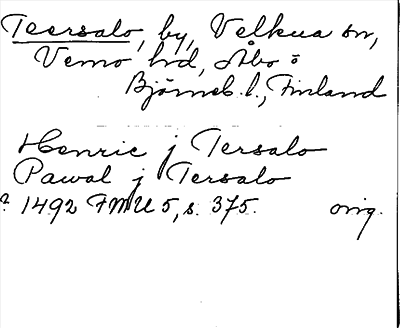 Teersalo, by, Velkua sn,
Vemo hd, Åbo o
Björneb. l., Finland
Henric j Tersalo
Pawal j Tersalo
? 1492 FMU 5, s. 375. orig.